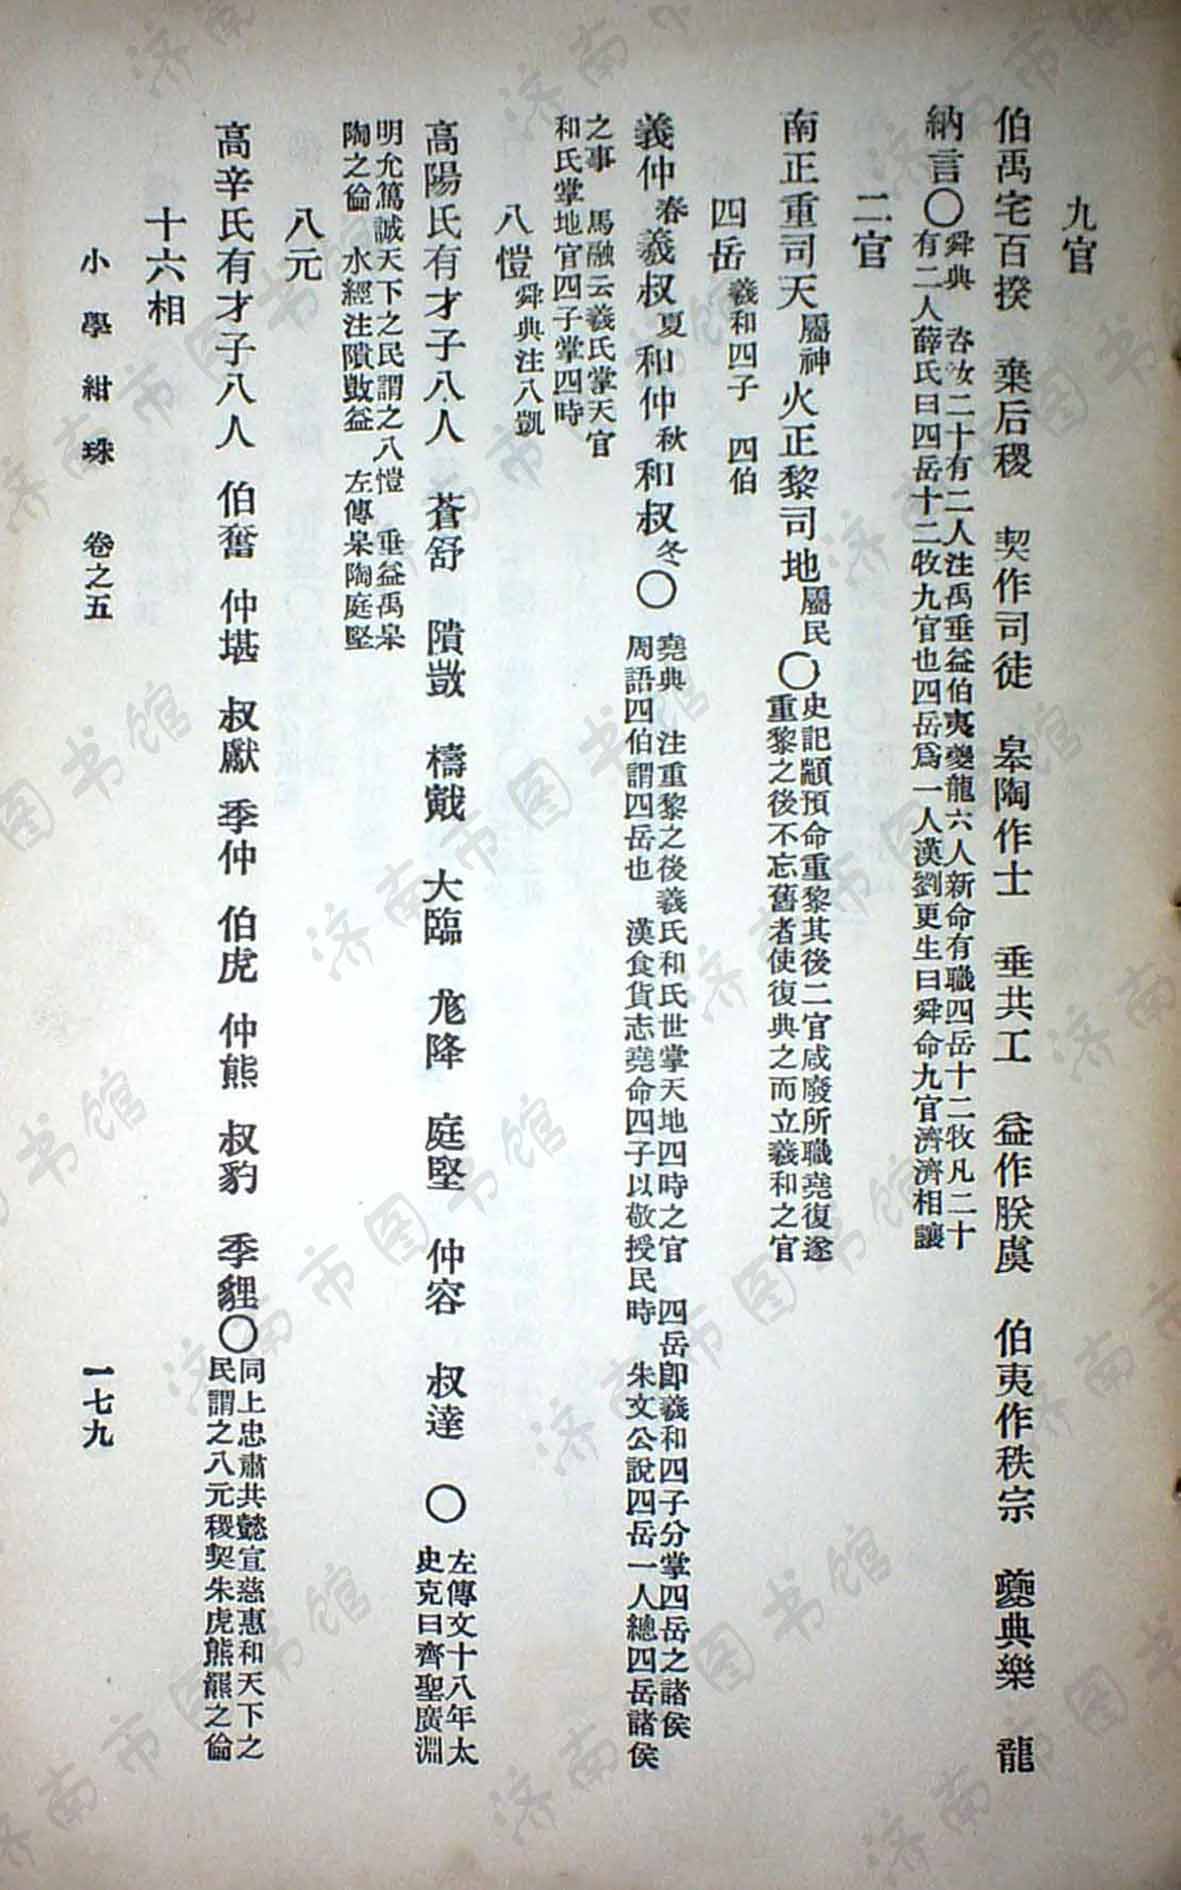 九官
伯禹宅百揆　棄后稷　契作司徒　皋陶作士　垂共工　益作朕虞　伯夷作秩宗　夔典樂　龍
納言〇舜典　咨汝二十有二人注禹垂益伯夷夔龍六人新命有職四岳十二牧凡二十
有二人薛氏曰四岳十二牧九官也四岳爲一人漢劉更生曰舜命九官濟濟相讓
二官
南正重司天屬神火正黎司地屬民〇史記顓頊命重黎其後二官咸廢所職堯復遂
重黎之後不忘舊者使復典之而立羲和之官
四岳羲和四子　四伯
義仲春羲叔夏和仲秋和叔冬〇堯典　注重黎之後羲氏和氏世掌天地四時之官　四岳卽羲和四子分掌四岳之諸侯
周語四伯謂四岳也　漢食貨志堯命四子以敬授民時　朱文公說四岳一人總四岳諸侯
之事　馬融云羲氏掌天官
和氏掌地官四子掌四時
八愷舜典注八凱
高陽氏有才子八人　蒼舒　隤敳　檮戭　大臨　尨降　庭堅　仲容　叔達　〇左傳文十八年太
史克曰齊聖廣淵
明允篤誠天下之民謂之八愷　垂益禹皋
陶之倫　水經注隤敳益　左傳皋陶庭堅
八元
高辛氏有才子八人　伯奮　仲堪　叔獻　季仲　伯虎　仲熊　叔豹　季貍〇同上忠肅共懿宣慈惠和天下之
民謂之八元稷契朱虎熊羆之倫
十六相
小學紺珠　卷之五　一七九
济南市图书馆